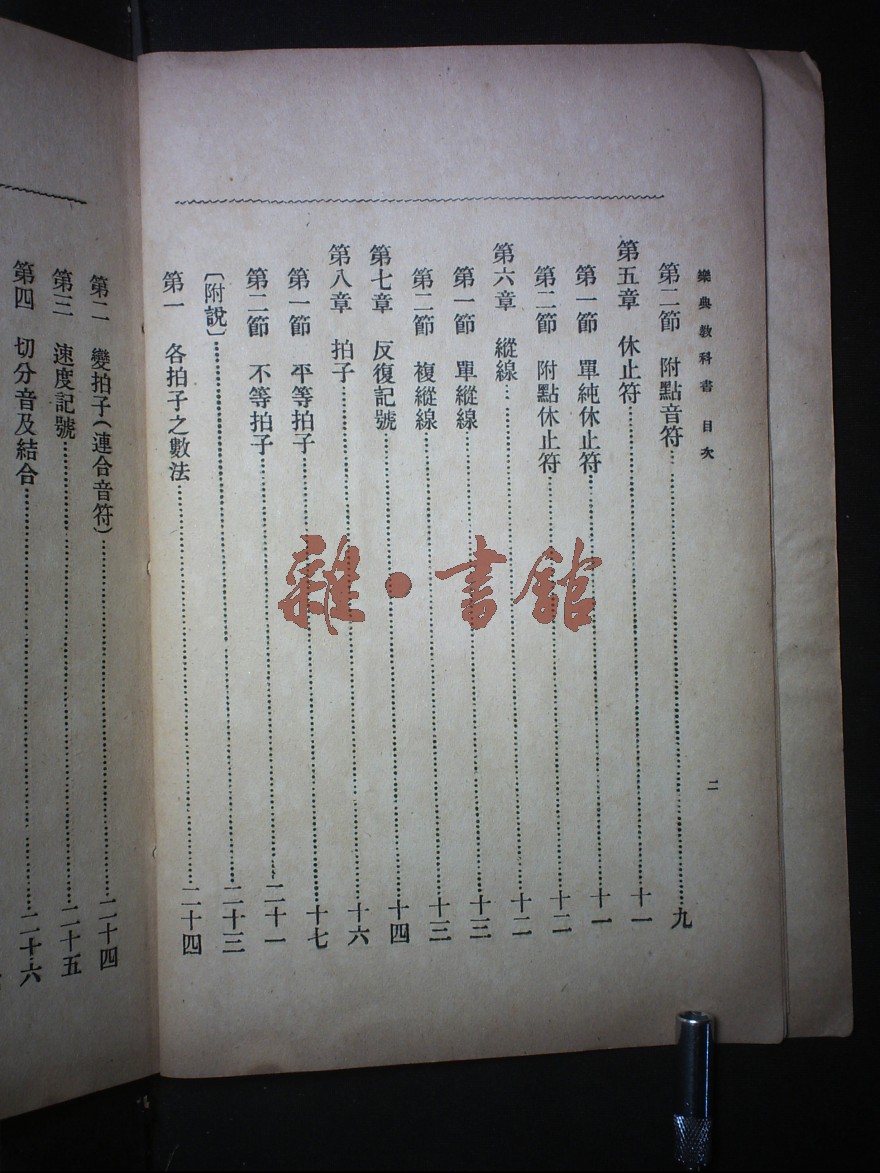 樂典教科書 目次
二
第二節 附點音符……九
第五章 休止符……十一
第一節 單純休止符……十一
第二節 附點休止符……十二
第六章 縱線……十二
第一節 單縱線……十三
第二節 複縱線……十三
第七章 反復記號……十四
第八章 拍子……十六
第一節 平等拍子……十七
第二節 不等拍子……二十一
〔附說〕……二十三
第一 各拍子之數法……二十四
第二 變拍子(連合音符)……二十四
第三 速度記號……二十五
第四 切分音及結合……二十六
雜·書館